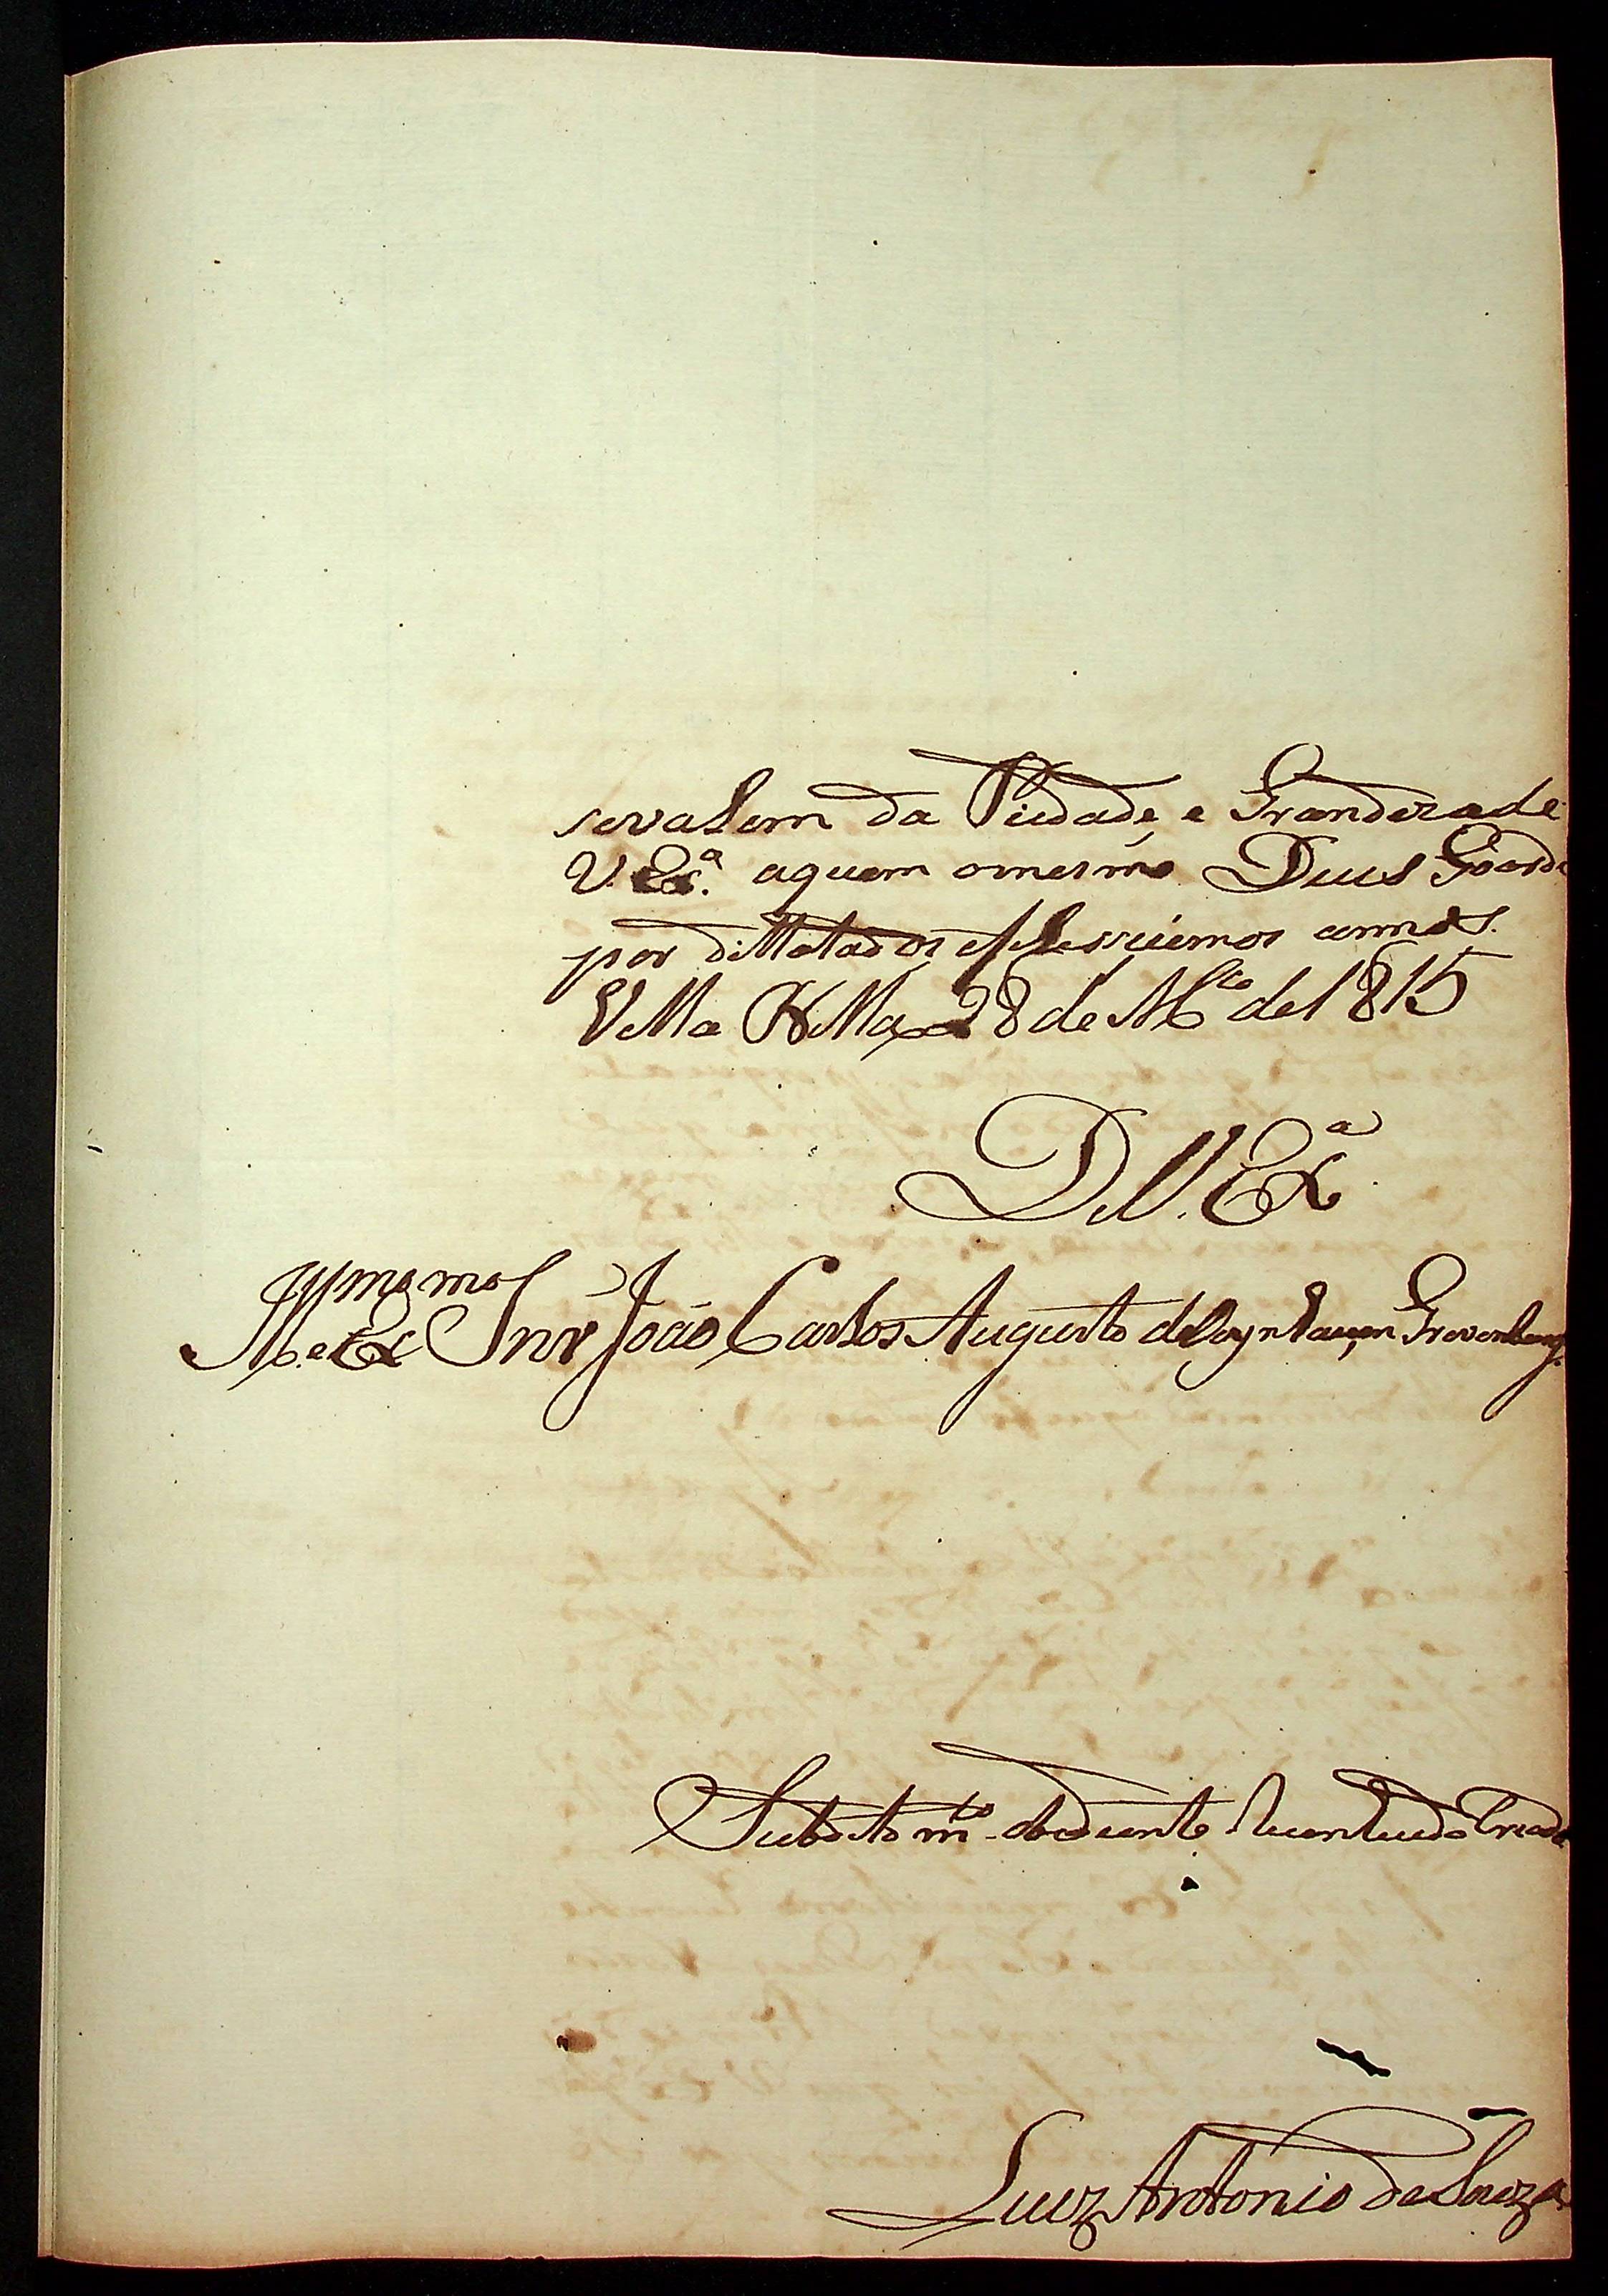 sevalem da Piedade, e Grandeza de
V. Exª. aquem omesmo Deus Goarde
por dillatados efelessicimos annos.
Villa Bella 28 de M.ço de 1815
De V. Exª
Illmo e Exmo Snr João Carlos Augusto de Oeynhausen Grevenberg.
Subdito mto obediente Criado
Luiz Antonio de Souza